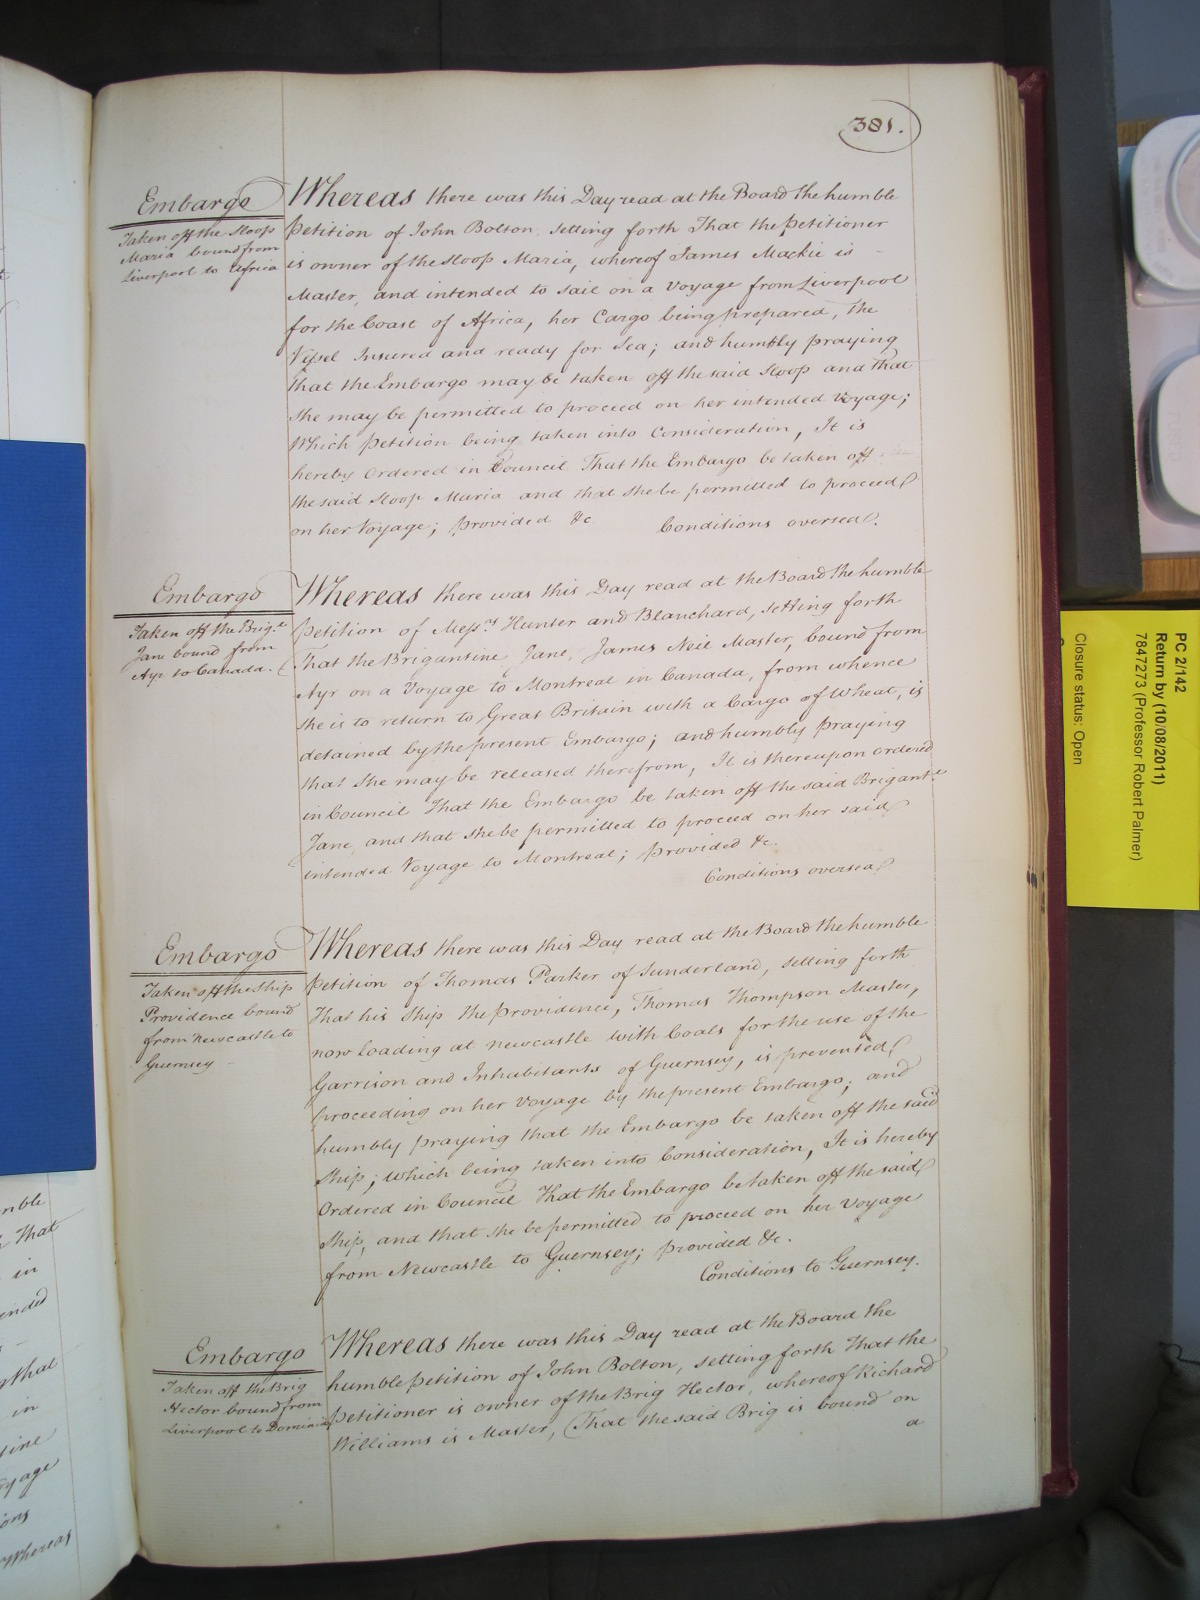 381.
Embargo
Taken off the Sloop
Maria bound from
Liverpool to Africa
Whereas there was this Day read at the Board the humble
Petition of John Bolton setting forth That the Petitioner
is owner of the Sloop Maria, whereof James Mackie is
Master, and intended to sail on a Voyage from Liverpool
for the Coast of Africa, her Cargo being prepared, the
Vessel Insured and ready for Sea; and humbly praying
that the Embargo may be taken off the said Sloop and that
she may be permitted to proceed on her intended Voyage;
Which Petition being taken into Consideration, It is
hereby Ordered in Council That the Embargo be taken off
the said Sloop Maria and that she be permitted to proceed
on her Voyage; Provided &c
Conditions oversea.
Embargo
Taken off the Brig.e
Jane bound from
Ayr to Canada.
Whereas there was this Day read at the Board the humble
Petition of Mess.rs Hunter and Blanchard, setting forth
That the Brigantine Jane, James Neil Master, bound from
Ayr on a Voyage to Montreal in Canada, from whence
she is to return to Great Britain with a Cargo of Wheat, is
detained by the present Embargo; and humbly praying
that she may be released therefrom, It is thereupon ordered
in Council That the Embargo be taken off the said Brigant.e
Jane, and that she be permitted to proceed on her said
intended Voyage to Montreal; Provided &c.
Conditions oversea
Embargo
Taken off the Ship
Providence bound
from Newcastle to
Guernsey
Whereas there was this Day read at the Board the humble
Petition of Thomas Parker of Sunderland, setting forth
That his Ship the Providence, Thomas Thompson Master,
now Loading at Newcastle with Coals for the use of the
Garrison and Inhabitants of Guernsey, is prevented
proceeding on her Voyage by the present Embargo; and
humbly praying that the Embargo be taken off the said
Ship; which being taken into Consideration, It is hereby
Ordered in Council That the Embargo be taken off the said
Ship, and that she be permitted to proceed on her Voyage
from Newcastle to Guernsey; Provided &c.
Conditions to Guernsey.
Embargo
Taken off the Brig
Hector bound from
Liverpool to Dominica
Whereas there was this Day read at the Board the
humble Petition of John Bolton, setting forth That the
Petitioner is owner of the Brig Hector, whereof Richard
Williams is Master, (That the said Brig is bound on
a
PC 2/142
Return by (10/08/2011)
7847273 (Professor Robert Palmer)
Closure status: Open
That
in
ended
that
in
Whereas